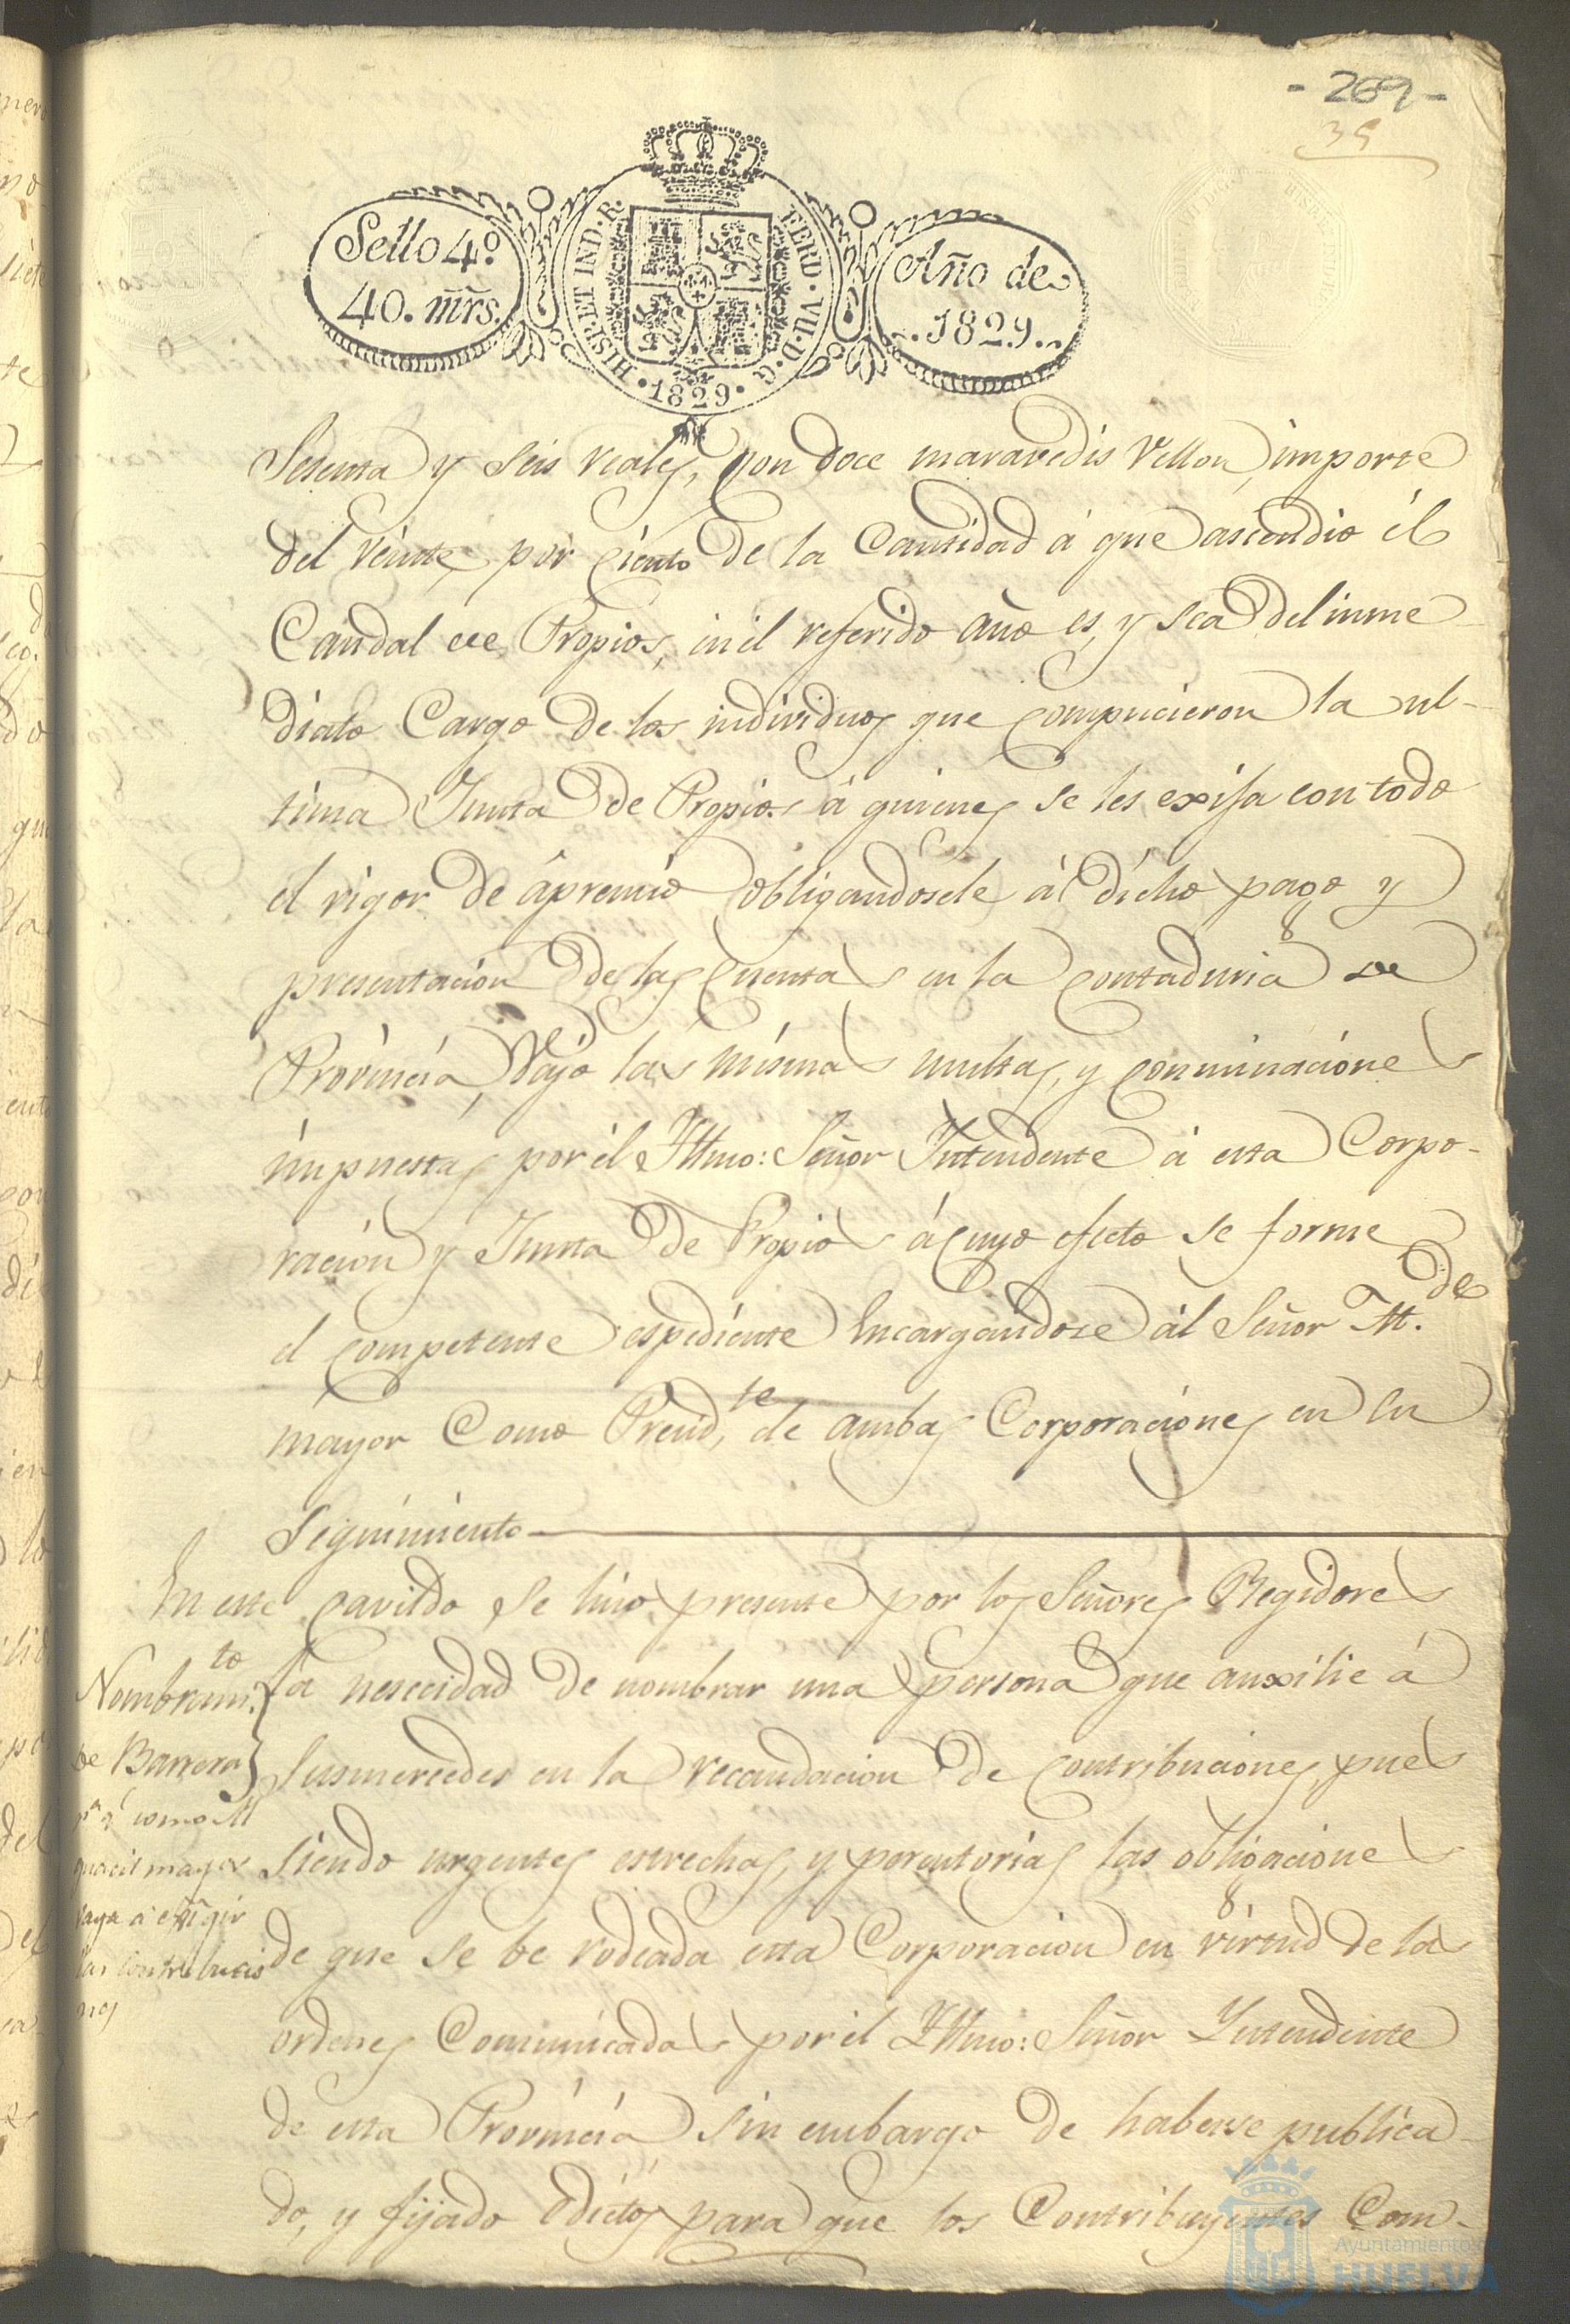 - 269 -
35
Sello 4º
40. mr̃s.
HISP. ET IND. R. FERD. VII. D. G. 1829.
Año de
1829
Sesenta y seis reales, con doce maravedis Vellon, importe
del veinte por ciento de la Cantidad á que ascendio él
Caudal de Propios, en el referido año es, y sea del inme
diato Cargo de los individuos que compucieron la ul-
tima Junta de Propios á quienes se les exija con todo
el rigor de ápremio obligandosele á dicho pago y
presentacion de las Cuentas en la Contaduria de
Provincia, vajo las mismas multas, y conminaciones
impuestas por él Yltmo: Señor Yntendente á esta Corpo-
racion y Junta de Propios á cuyo efecto se forme
el competente espediente Encargandose ál Señor Al.de
mayor Como Presid.te de ambas Corporaciones en su
Seguimiento
En este cavildo se hiso presente por los Señores Regidores
la nesecidad de nombrar una persona que auxilie á
Susmercedes en la recaudacion de Contribuciones, pues
siendo urgentes estrechas, y perentorias las obligaciones
de que se be rodeada esta Corporacion en virtud de las
ordenes Comunicadas por él Yltmo: Señor Yntendente
de esta Provincia sin embargo de haberse publica-
do, y fijado Edictos para que los Contribuyentes Com-
Nombram.to
de Barrera
pª qe como Al
guacil mayor
vaya á exigir
las contribucio
nes
Ayuntamiento de
HUELVA